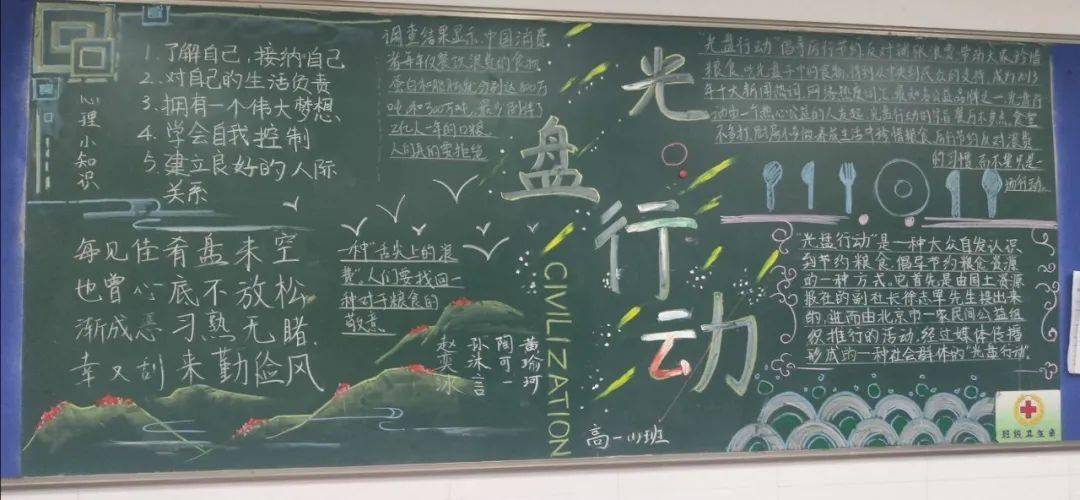 心理小知识
1. 了解自己，接纳自己
2. 对自己的生活负责
3. 拥有一个伟大梦想
4. 学会自我控制
5. 建立良好的人际
关系
调查结果显示，中国消费
者每年仅餐饮浪费的食物
蛋白和脂肪就分别达800万
吨和300万吨，最少倒掉了
2亿人一年的口粮
人们真的要拒绝
一种“舌尖上的浪
费”，人们要找回一
种对于粮食的
敬意
每见佳肴盘未空
也曾心底不放松
渐成恶习熟无睹
幸又刮来勤俭风
赵奕冰
孙沐言
陶可一
黄瑜珂
CIVILIZATION
光盘行动
“光盘行动”倡导厉行节约反对铺张浪费，带动大家珍惜
粮食，吃光盘子中的食物，得到从中央到民众的支持，成为2013
年十大新闻热词、网络热度词汇，最知名公益品牌之一。光盘行
动由一个热心公益的人发起，光盘行动的宗旨：餐厅不多点、食堂
不多打、厨房不多做。养成生活中珍惜粮食、厉行节约反对浪费
的习惯，而不要只是
一场行动。
“光盘行动”是一种大众自发认识
到节约粮食，倡导节约粮食资源
的一种方式。它首先是由国土资源
报社的副社长徐志军先生提出来
的，进而由北京市一家民间公益组
织推行的活动，经过媒体传播
形成的一种社会群体的“光盘行动”
高一(1)班
班级卫生委